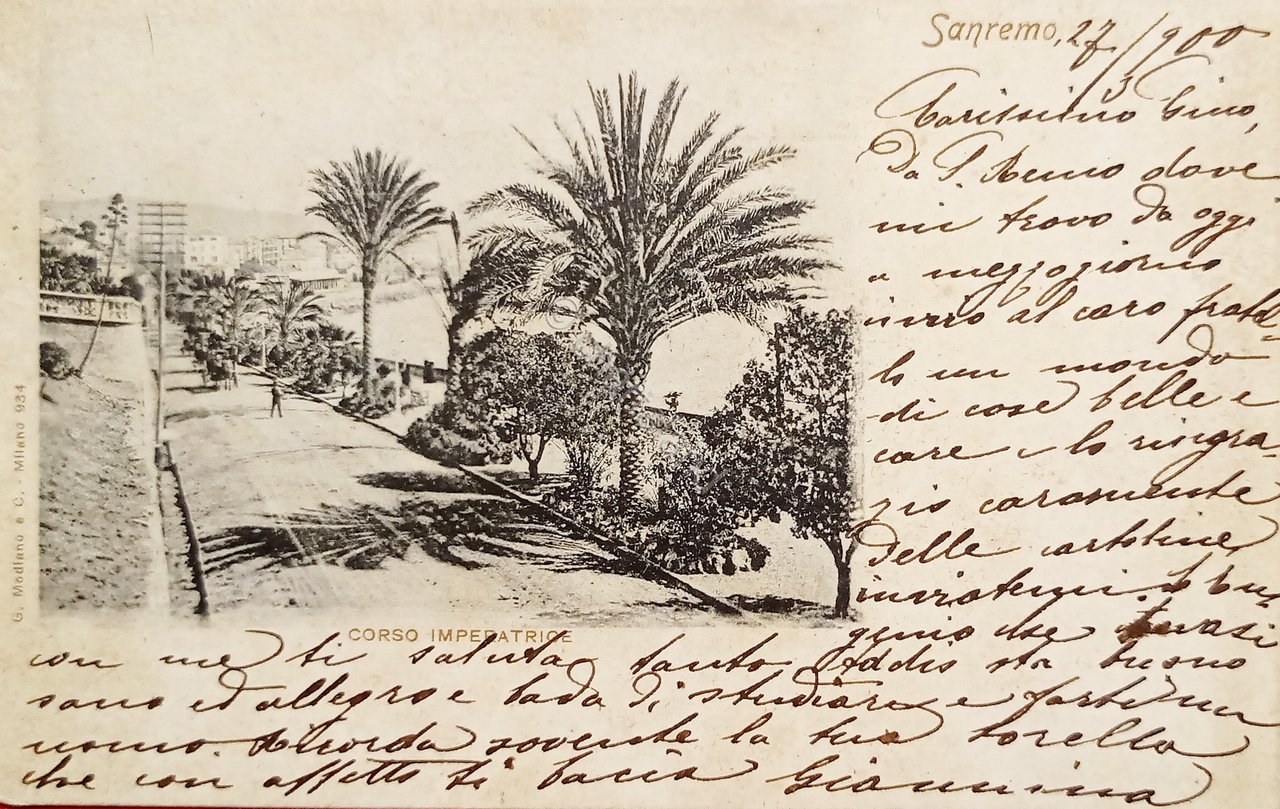 Sanremo, 27/3 900
Carissimo Gino,
Da S. Remo dove
mi trovo da oggi
a mezzogiorno
invio al caro fratel-
lo un mondo
di cose belle e
care e lo ringra-
zio caramente
delle cartoline
inviatemi. Eu-
genio che trovasi
con me ti saluta tanto Addio sta buono
sano ed allegro e bada di studiare e farti un
uomo. Ricorda sovente la tua sorella
che con affetto ti bacia Giannina
CORSO IMPERATRICE
G. Modiano e C. - Milano 934